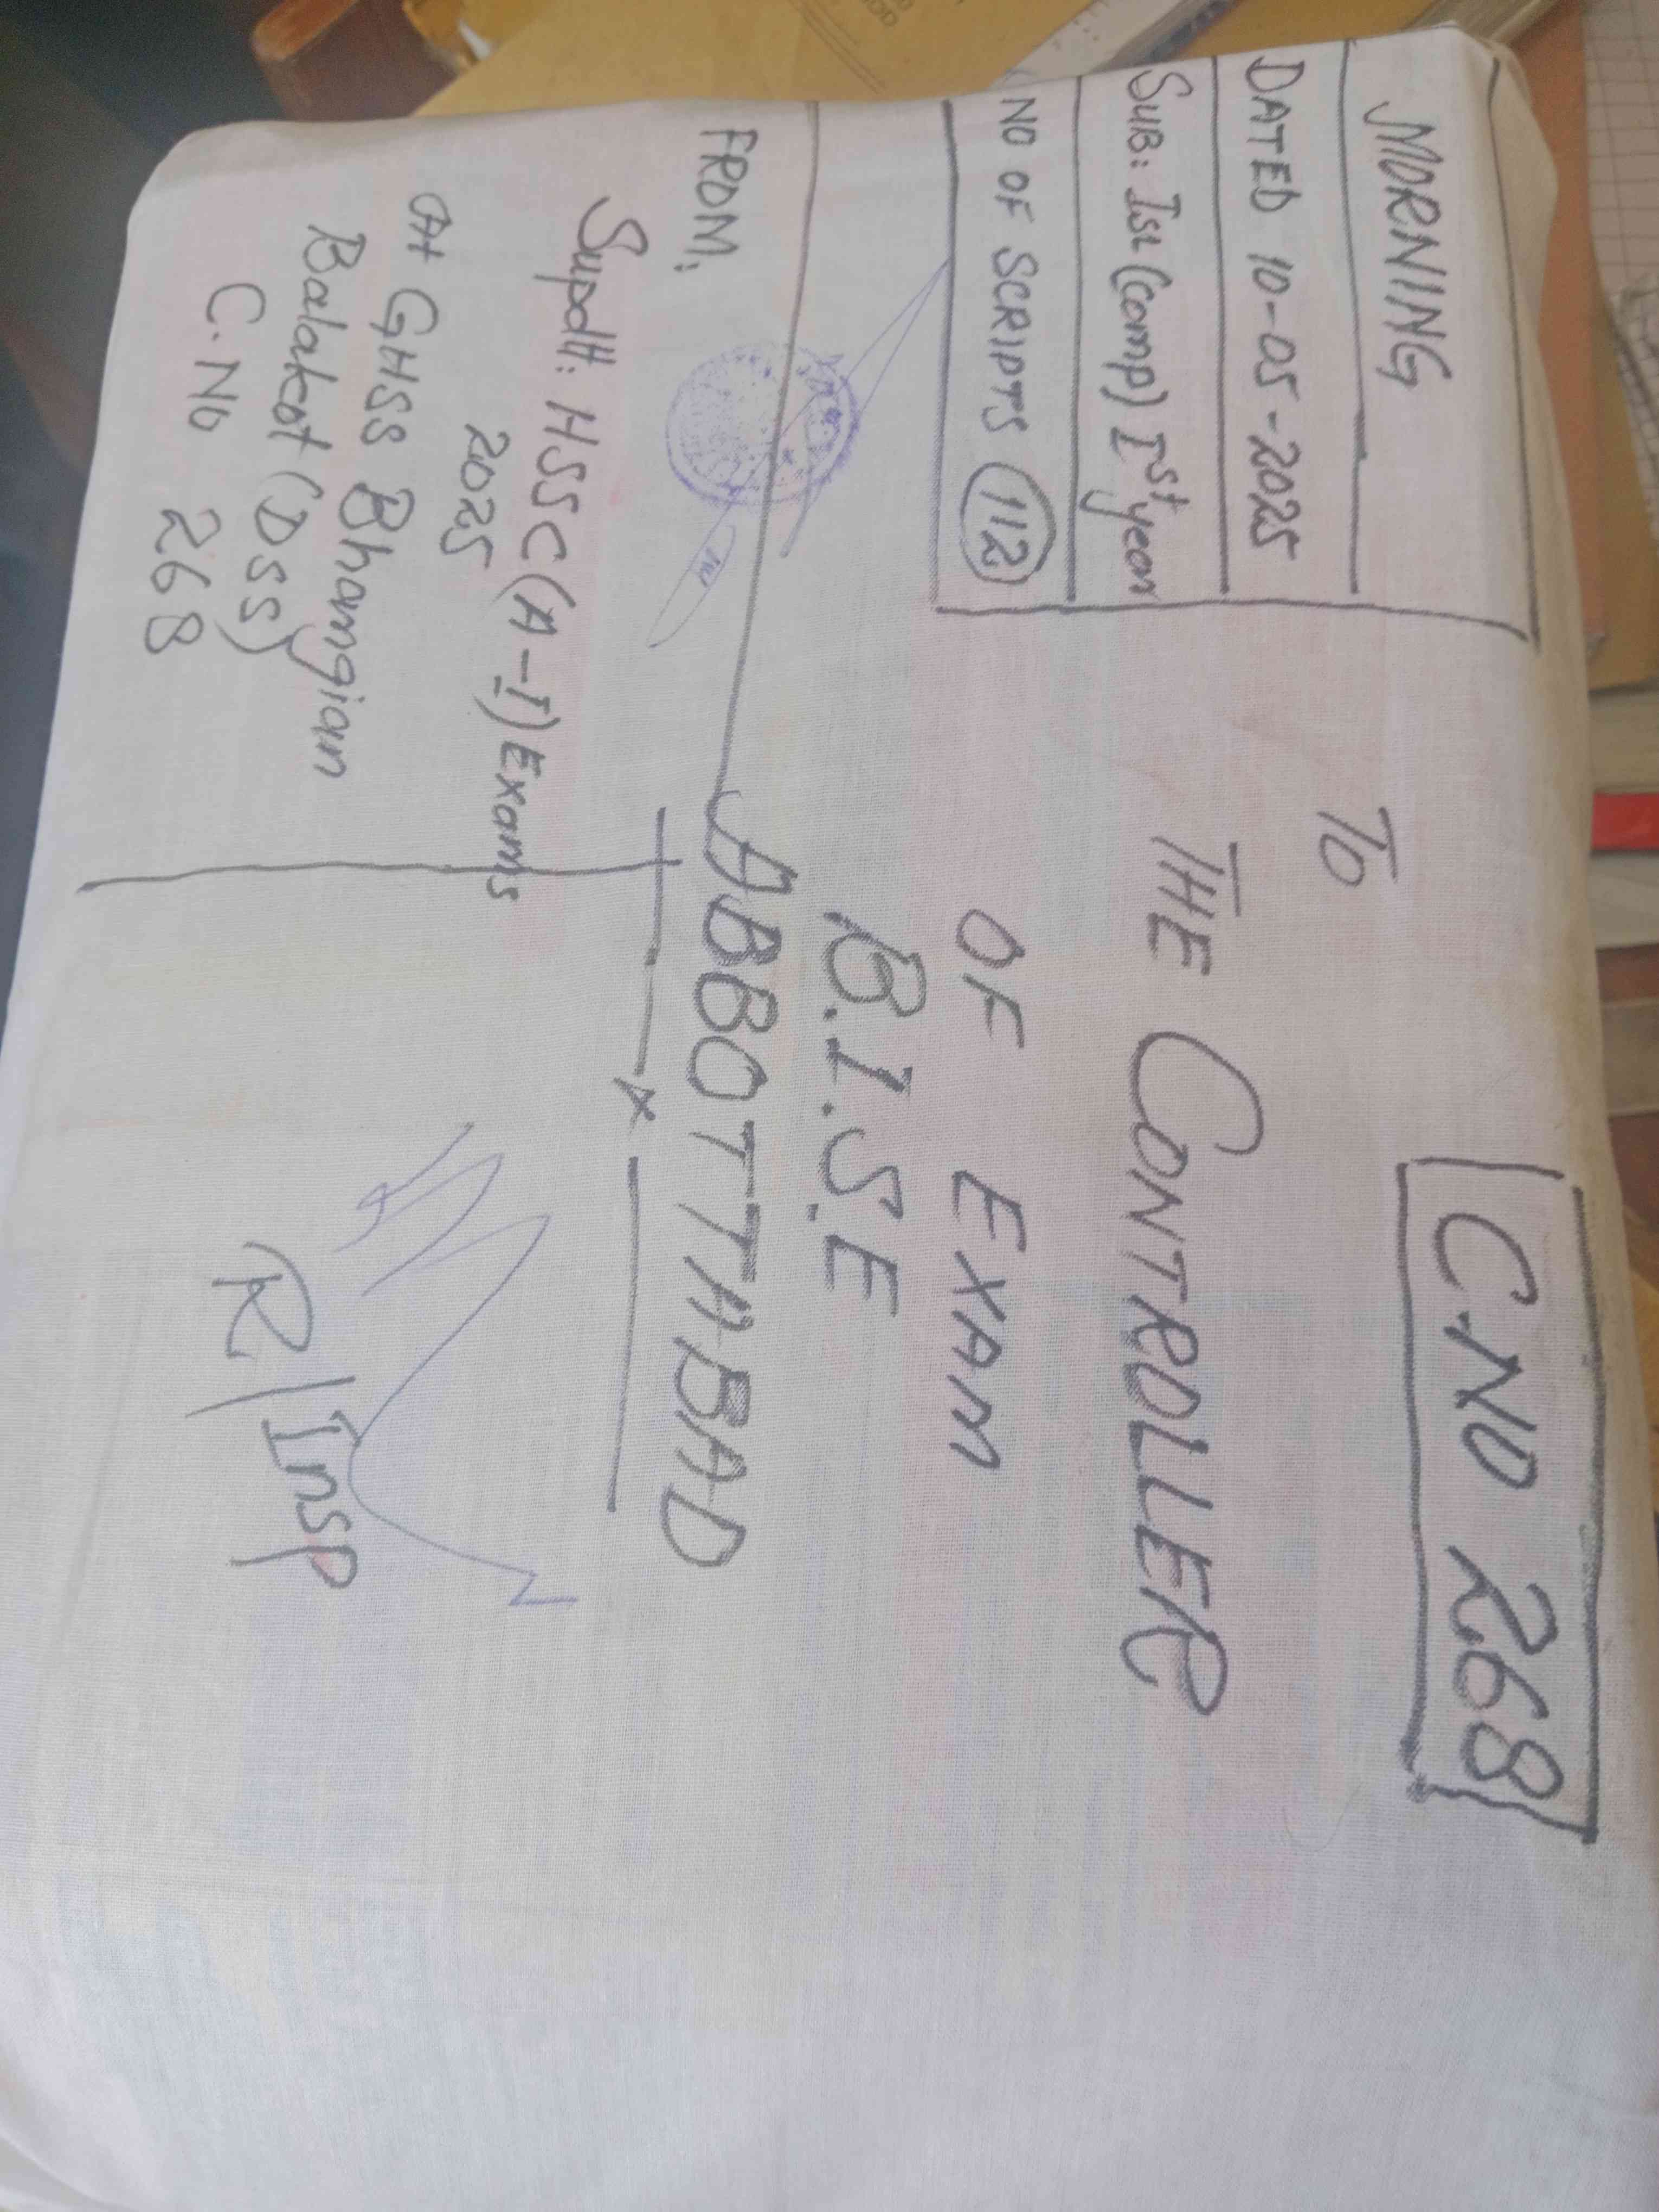 MORNING
DATED 10-05-2025
SUB: Isl (Comp) Ist year
NO OF SCRIPTS 112
C.NO 268
TO
THE CONTROLLER
OF EXAM
B.I.S.E
ABBOTTABAD
FROM:
Supdtt: HSSC (A-I) Exams
2025
At GHSS Bhamgian
Balakot (DSS)
C.No 268
R/Insp